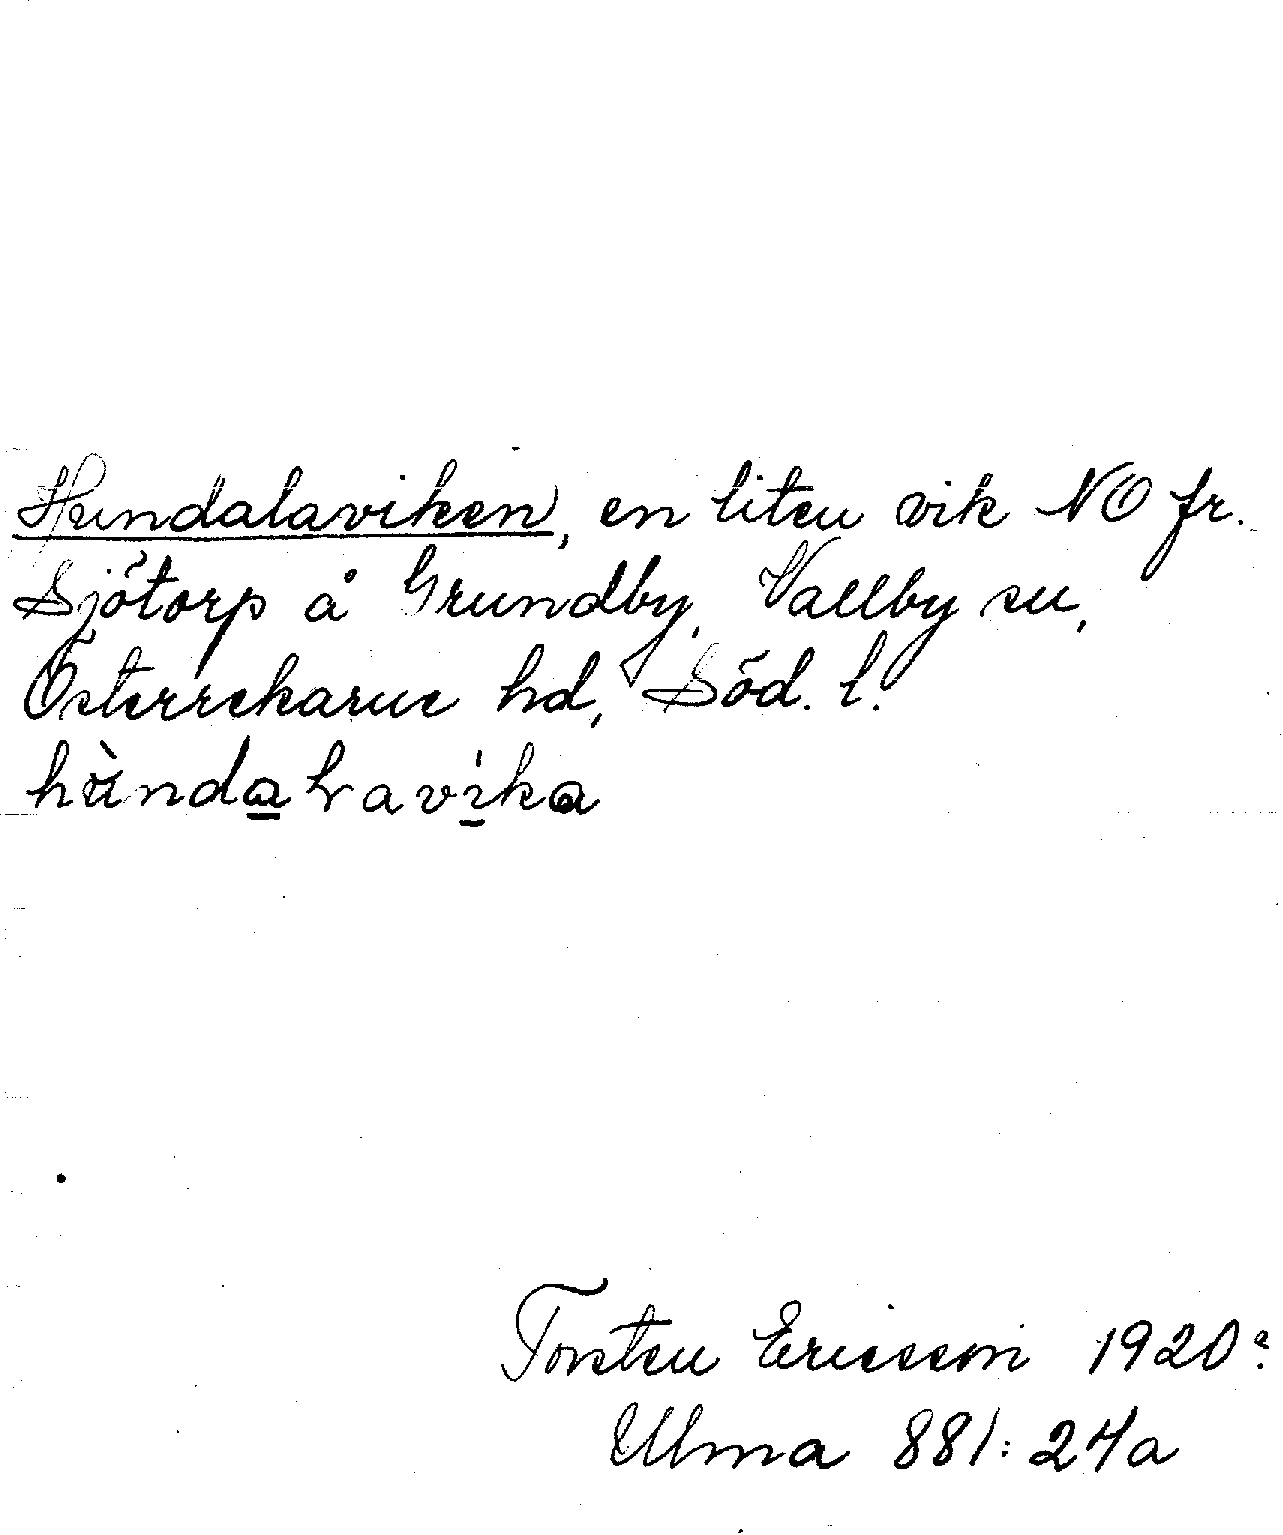 Hundalaviken, en liten vik NO fr.
Sjötorp å Grundby, Vallby sn,
Österrekarne hd, Söd. l.
hùndaɬavíka
Torsten Ericsson 1920?
Ulma 881:24a